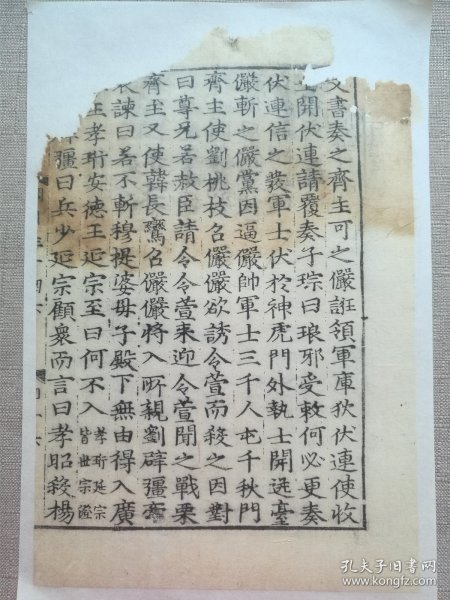 文書奏之齊主可之儼誑領軍庫狄伏連使收
開伏連請覆奏子琮曰琅邪受敕何必更奏
伏連信之發軍士伏於神虎門外執士開送臺
儼斬之儼黨因逼儼帥軍士三千人屯千秋門
齊主使劉桃枝名儼儼欲誘令萱而殺之因對
曰尊兄若赦臣請令令萱來迎令萱聞之戰栗
齊主又使韓長鸞名儼儼將入所親劉辟彊牽
衣諫曰若不斬穆提婆母子殿下無由得入廣
王孝珩安德王延宗至曰何不入
孝珩延宗
皆世宗澄
彊曰兵少延宗顧衆而言曰孝昭殺楊
孔夫子旧书网
www.kongfz.com